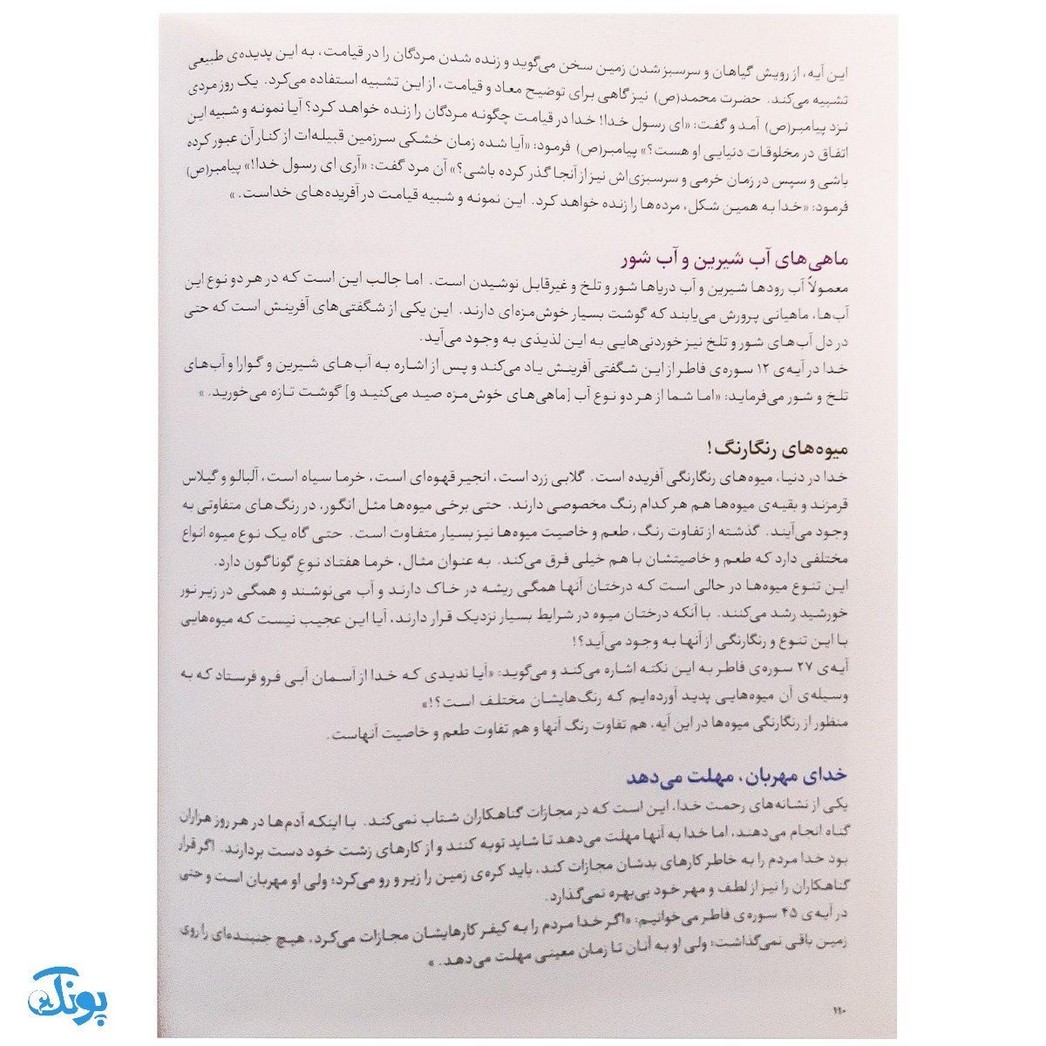 این آیه، از رویش گیاهان و سرسبز شدن زمین سخن می‌گوید و زنده شدن مردگان را در قیامت، به این پدیده‌ی طبیعی
تشبیه می‌کند. حضرت محمد(ص) نیز گاهی برای توضیح معاد و قیامت، از این تشبیه استفاده می‌کرد. یک روز مردی
نزد پیامبر(ص) آمد و گفت: «ای رسول خدا! خدا در قیامت چگونه مردگان را زنده خواهد کرد؟ آیا نمونه و شبیه این
اتفاق در مخلوقات دنیایی او هست؟» پیامبر(ص) فرمود: «آیا شده زمان خشکی سرزمین قبیله‌ات از کنار آن عبور کرده
باشی و سپس در زمان خرمی و سرسبزی‌اش نیز از آنجا گذر کرده باشی؟» آن مرد گفت: «آری ای رسول خدا!» پیامبر(ص)
فرمود: «خدا به همین شکل، مرده‌ها را زنده خواهد کرد. این نمونه و شبیه قیامت در آفریده‌های خداست.»
ماهی‌های آب شیرین و آب شور
معمولاً آب رودها شیرین و آب دریاها شور و تلخ و غیرقابل نوشیدن است. اما جالب این است که در هر دو نوع این
آب‌ها، ماهیانی پرورش می‌یابند که گوشت بسیار خوش‌مزه‌ای دارند. این یکی از شگفتی‌های آفرینش است که حتی
در دل آب‌های شور و تلخ نیز خوردنی‌هایی به این لذیذی به وجود می‌آید.
خدا در آیه‌ی ۱۲ سوره‌ی فاطر از این شگفتی آفرینش یاد می‌کند و پس از اشاره به آب‌های شیرین و گوارا و آب‌های
تلخ و شور می‌فرماید: «اما شما از هر دو نوع آب [ماهی‌های خوش‌مزه صید می‌کنید و] گوشت تازه می‌خورید.»
میوه‌های رنگارنگ!
خدا در دنیا، میوه‌های رنگارنگی آفریده است. گلابی زرد است، انجیر قهوه‌ای است، خرما سیاه است، آلبالو و گیلاس
قرمزند و بقیه‌ی میوه‌ها هم هر کدام رنگ مخصوصی دارند. حتی برخی میوه‌ها مثل انگور، در رنگ‌های متفاوتی به
وجود می‌آیند. گذشته از تفاوت رنگ، طعم و خاصیت میوه‌ها نیز بسیار متفاوت است. حتی گاه یک نوع میوه انواع
مختلفی دارد که طعم و خاصیتشان با هم خیلی فرق می‌کند. به عنوان مثال، خرما هفتاد نوعِ گوناگون دارد.
این تنوع میوه‌ها در حالی است که درختان آنها همگی ریشه در خاک دارند و آب می‌نوشند و همگی در زیر نور
خورشید رشد می‌کنند. با آنکه درختان میوه در شرایط بسیار نزدیک قرار دارند، آیا این عجیب نیست که میوه‌هایی
با این تنوع و رنگارنگی از آنها به وجود می‌آید؟!
آیه‌ی ۲۷ سوره‌ی فاطر به این نکته اشاره می‌کند و می‌گوید: «آیا ندیدی که خدا از آسمان آبی فرو فرستاد که به
وسیله‌ی آن میوه‌هایی پدید آورده‌ایم که رنگ‌هایشان مختلف است؟!»
منظور از رنگارنگی میوه‌ها در این آیه، هم تفاوت رنگ آنها و هم تفاوت طعم و خاصیت آنهاست.
خدای مهربان، مهلت می‌دهد
یکی از نشانه‌های رحمت خدا، این است که در مجازات گناهکاران شتاب نمی‌کند. با اینکه آدم‌ها در هر روز هزاران
گناه انجام می‌دهند، اما خدا به آنها مهلت می‌دهد تا شاید توبه کنند و از کارهای زشت خود دست بردارند. اگر قرار
بود خدا مردم را به خاطر کارهای بدشان مجازات کند، باید کره‌ی زمین را زیر و رو می‌کرد؛ ولی او مهربان است و حتی
گناهکاران را نیز از لطف و مهر خود بی‌بهره نمی‌گذارد.
در آیه‌ی ۴۵ سوره‌ی فاطر می‌خوانیم: «اگر خدا مردم را به کیفر کارهایشان مجازات می‌کرد، هیچ جنبنده‌ای را روی
زمین باقی نمی‌گذاشت؛ ولی او به آنان تا زمان معینی مهلت می‌دهد.»
۱۱۰
پونک